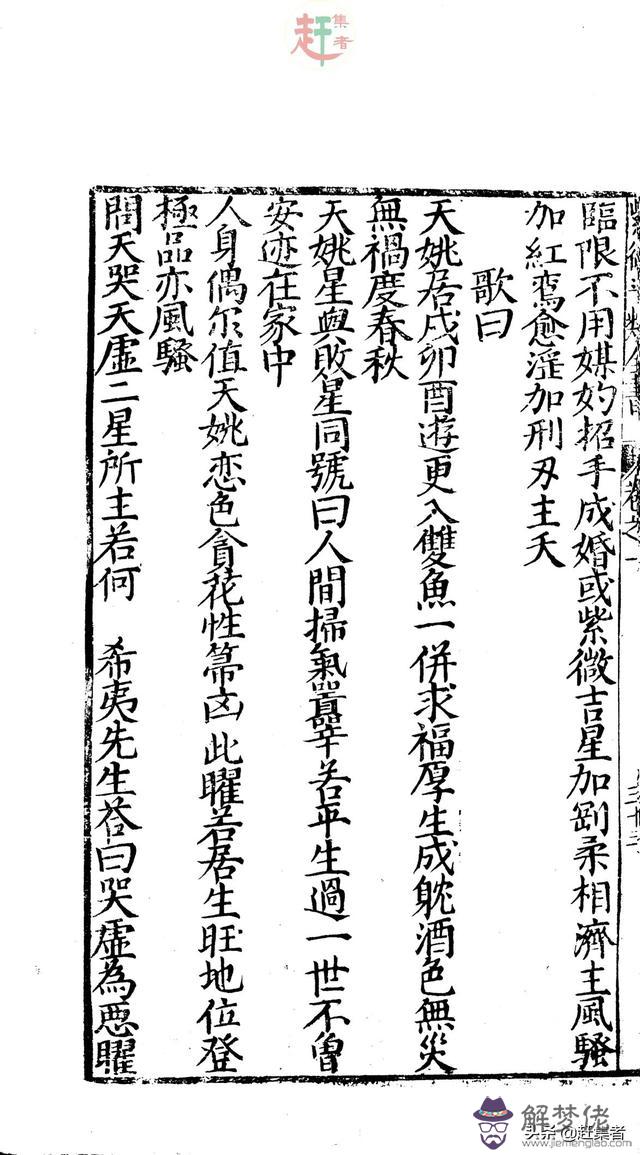 赶集者
臨限不用媒妁招手成婚或紫微吉星加剛柔相濟主風騷
加紅鸞愈淫加刑刃主夭
歌曰
天姚居戌卯酉遊更入雙魚一併求福厚生成躭酒色無災
無禍度春秋
天姚星與敗星同號曰人間掃氣囂辛苦平生過一世不曾
安迹在家中
人身偶尔值天姚恋色貪花性帶凶此曜若居生旺地位登
極品亦風騷
問天哭天虛二星所主若何 希夷先生荅曰哭虛為惡曜
解梦佬
www.jiemenglao.com
头条@赶集者